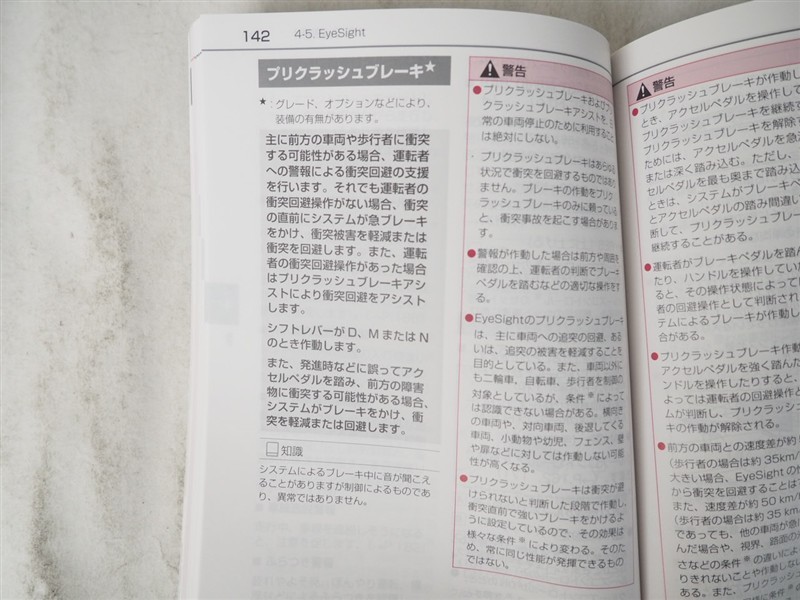 142
4-5. EyeSight
プリクラッシュブレーキ★
★：グレード、オプションなどにより、
装備の有無があります。
主に前方の車両や歩行者に衝突
する可能性がある場合、運転者
への警報による衝突回避の支援
を行います。それでも運転者の
衝突回避操作がない場合、衝突
の直前にシステムが急ブレーキ
をかけ、衝突被害を軽減または
衝突を回避します。また、運転
者の衝突回避操作があった場合
はプリクラッシュブレーキアシ
ストにより衝突回避をアシスト
します。
シフトレバーが D、M または N
のとき作動します。
また、発進時などに誤ってアク
セルペダルを踏み、前方の障害
物に衝突する可能性がある場合、
システムがブレーキをかけ、衝
突を軽減または回避します。
知識
システムによるブレーキ中に音が聞こえ
ることがありますが制御によるものであ
り、異常ではありません。
警告
●プリクラッシュブレーキおよびプ
クラッシュブレーキアシストを、
常の車両停止のために利用すること
は絶対にしない。
・プリクラッシュブレーキはあらゆる
状況で衝突を回避するものではあり
ません。ブレーキの作動をプリク
ラッシュブレーキのみに頼っている
と、衝突事故を起こす場合がありま
す。
●警報が作動した場合は前方や周囲を
確認の上、運転者の判断でブレーキ
ペダルを踏むなどの適切な操作をす
る。
●EyeSightのプリクラッシュブレーキ
は、主に車両への追突の回避、ある
いは、追突の被害を軽減することを
目的としている。また、車両以外に
も二輪車、自転車、歩行者を制御の
対象としているが、条件※によって
は認識できない場合がある。横向き
の車両や、対向車両、後退してくる
車両、小動物や幼児、フェンス、壁
や扉などに対しては作動しない可能
性が高くなる。
●プリクラッシュブレーキは衝突が避
けられないと判断した段階で作動し、
衝突直前で強いブレーキをかけるよ
うに設定しているので、その効果は
様々な条件※により変わる。そのた
め、常に同じ性能が発揮できるもの
ではない。
警告
●プリクラッシュブレーキが作動し
とき、アクセルペダルを操作して
プリクラッシュブレーキを継続す
プリクラッシュブレーキを解除す
ためには、アクセルペダルを急
または深く踏み込む。ただし、
セルペダルを最も奥まで踏み込
ときは、システムがブレーキペ
とアクセルペダルの踏み間違い
断して、プリクラッシュブレー
継続することがある。
●運転者がブレーキペダルを踏ん
たり、ハンドルを操作してい
ると、その操作状態によって
者の回避操作として判断され
テムによるブレーキが作動し
合がある。
●プリクラッシュブレーキ作動
アクセルペダルを強く踏んた
ンドルを操作したりすると、
よっては運転者の回避操作と
ムが判断し、プリクラッシュ
キの作動が解除される。
●前方の車両との速度差が約
(歩行者の場合は約 35km/
大きい場合、EyeSightの
から衝突を回避することは
また、速度差が約 50 km/
(歩行者の場合は約 35 km
であっても、他の車両が急
んだ場合や、視界、路面の
さなどの条件※の違いによ
りきれないことや作動しない
ある。また、プリクラッシ